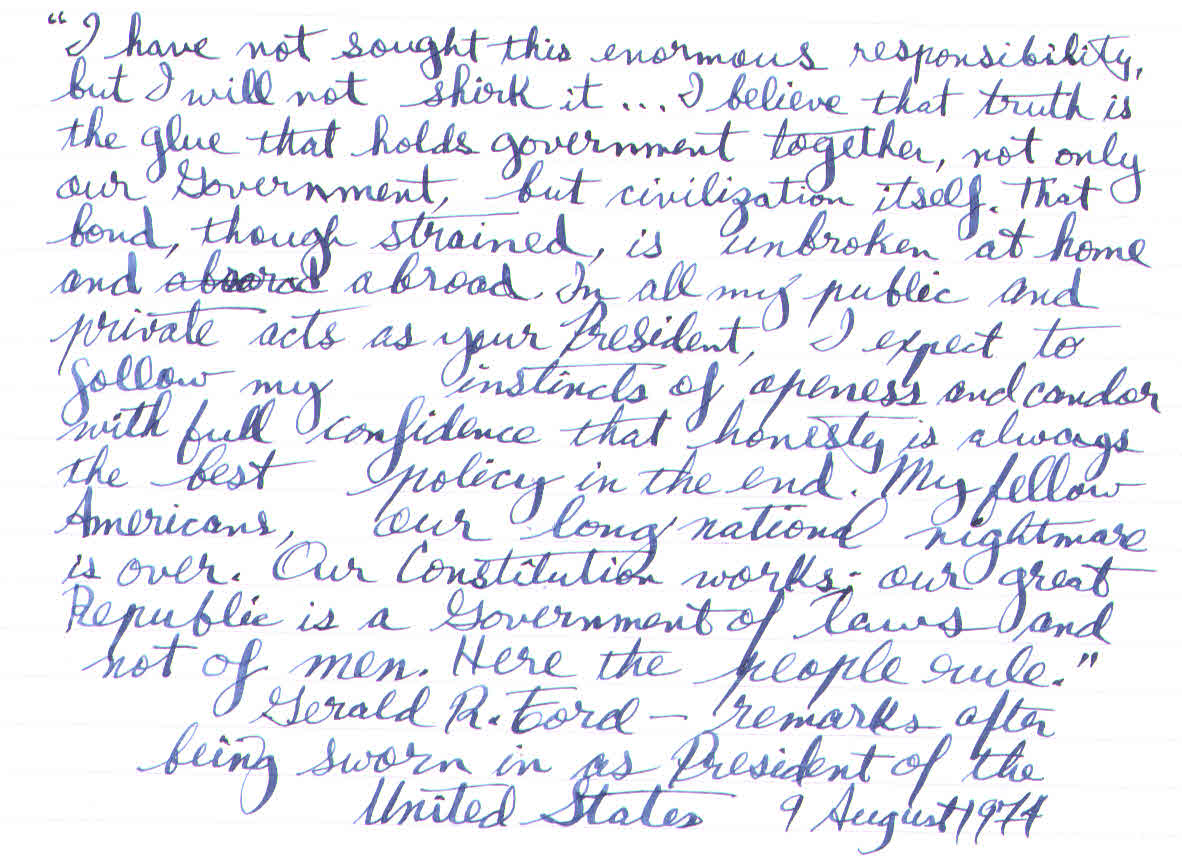 "I have not sought this enormous responsibility,
but I will not shirk it ... I believe that truth is
the glue that holds government together, not only
our Government, but civilization itself. That
bond, though strained, is unbroken at home
and abroad. In all my public and
private acts as your President, I expect to
follow my instincts of openess and candor
with full confidence that honesty is always
the best policy in the end. My fellow
Americans, our long national nightmare
is over. Our Constitution works; our great
Republic is a Government of laws and
not of men. Here the people rule."
Gerald R. Ford — remarks after
being sworn in as President of the
United States 9 August 1974